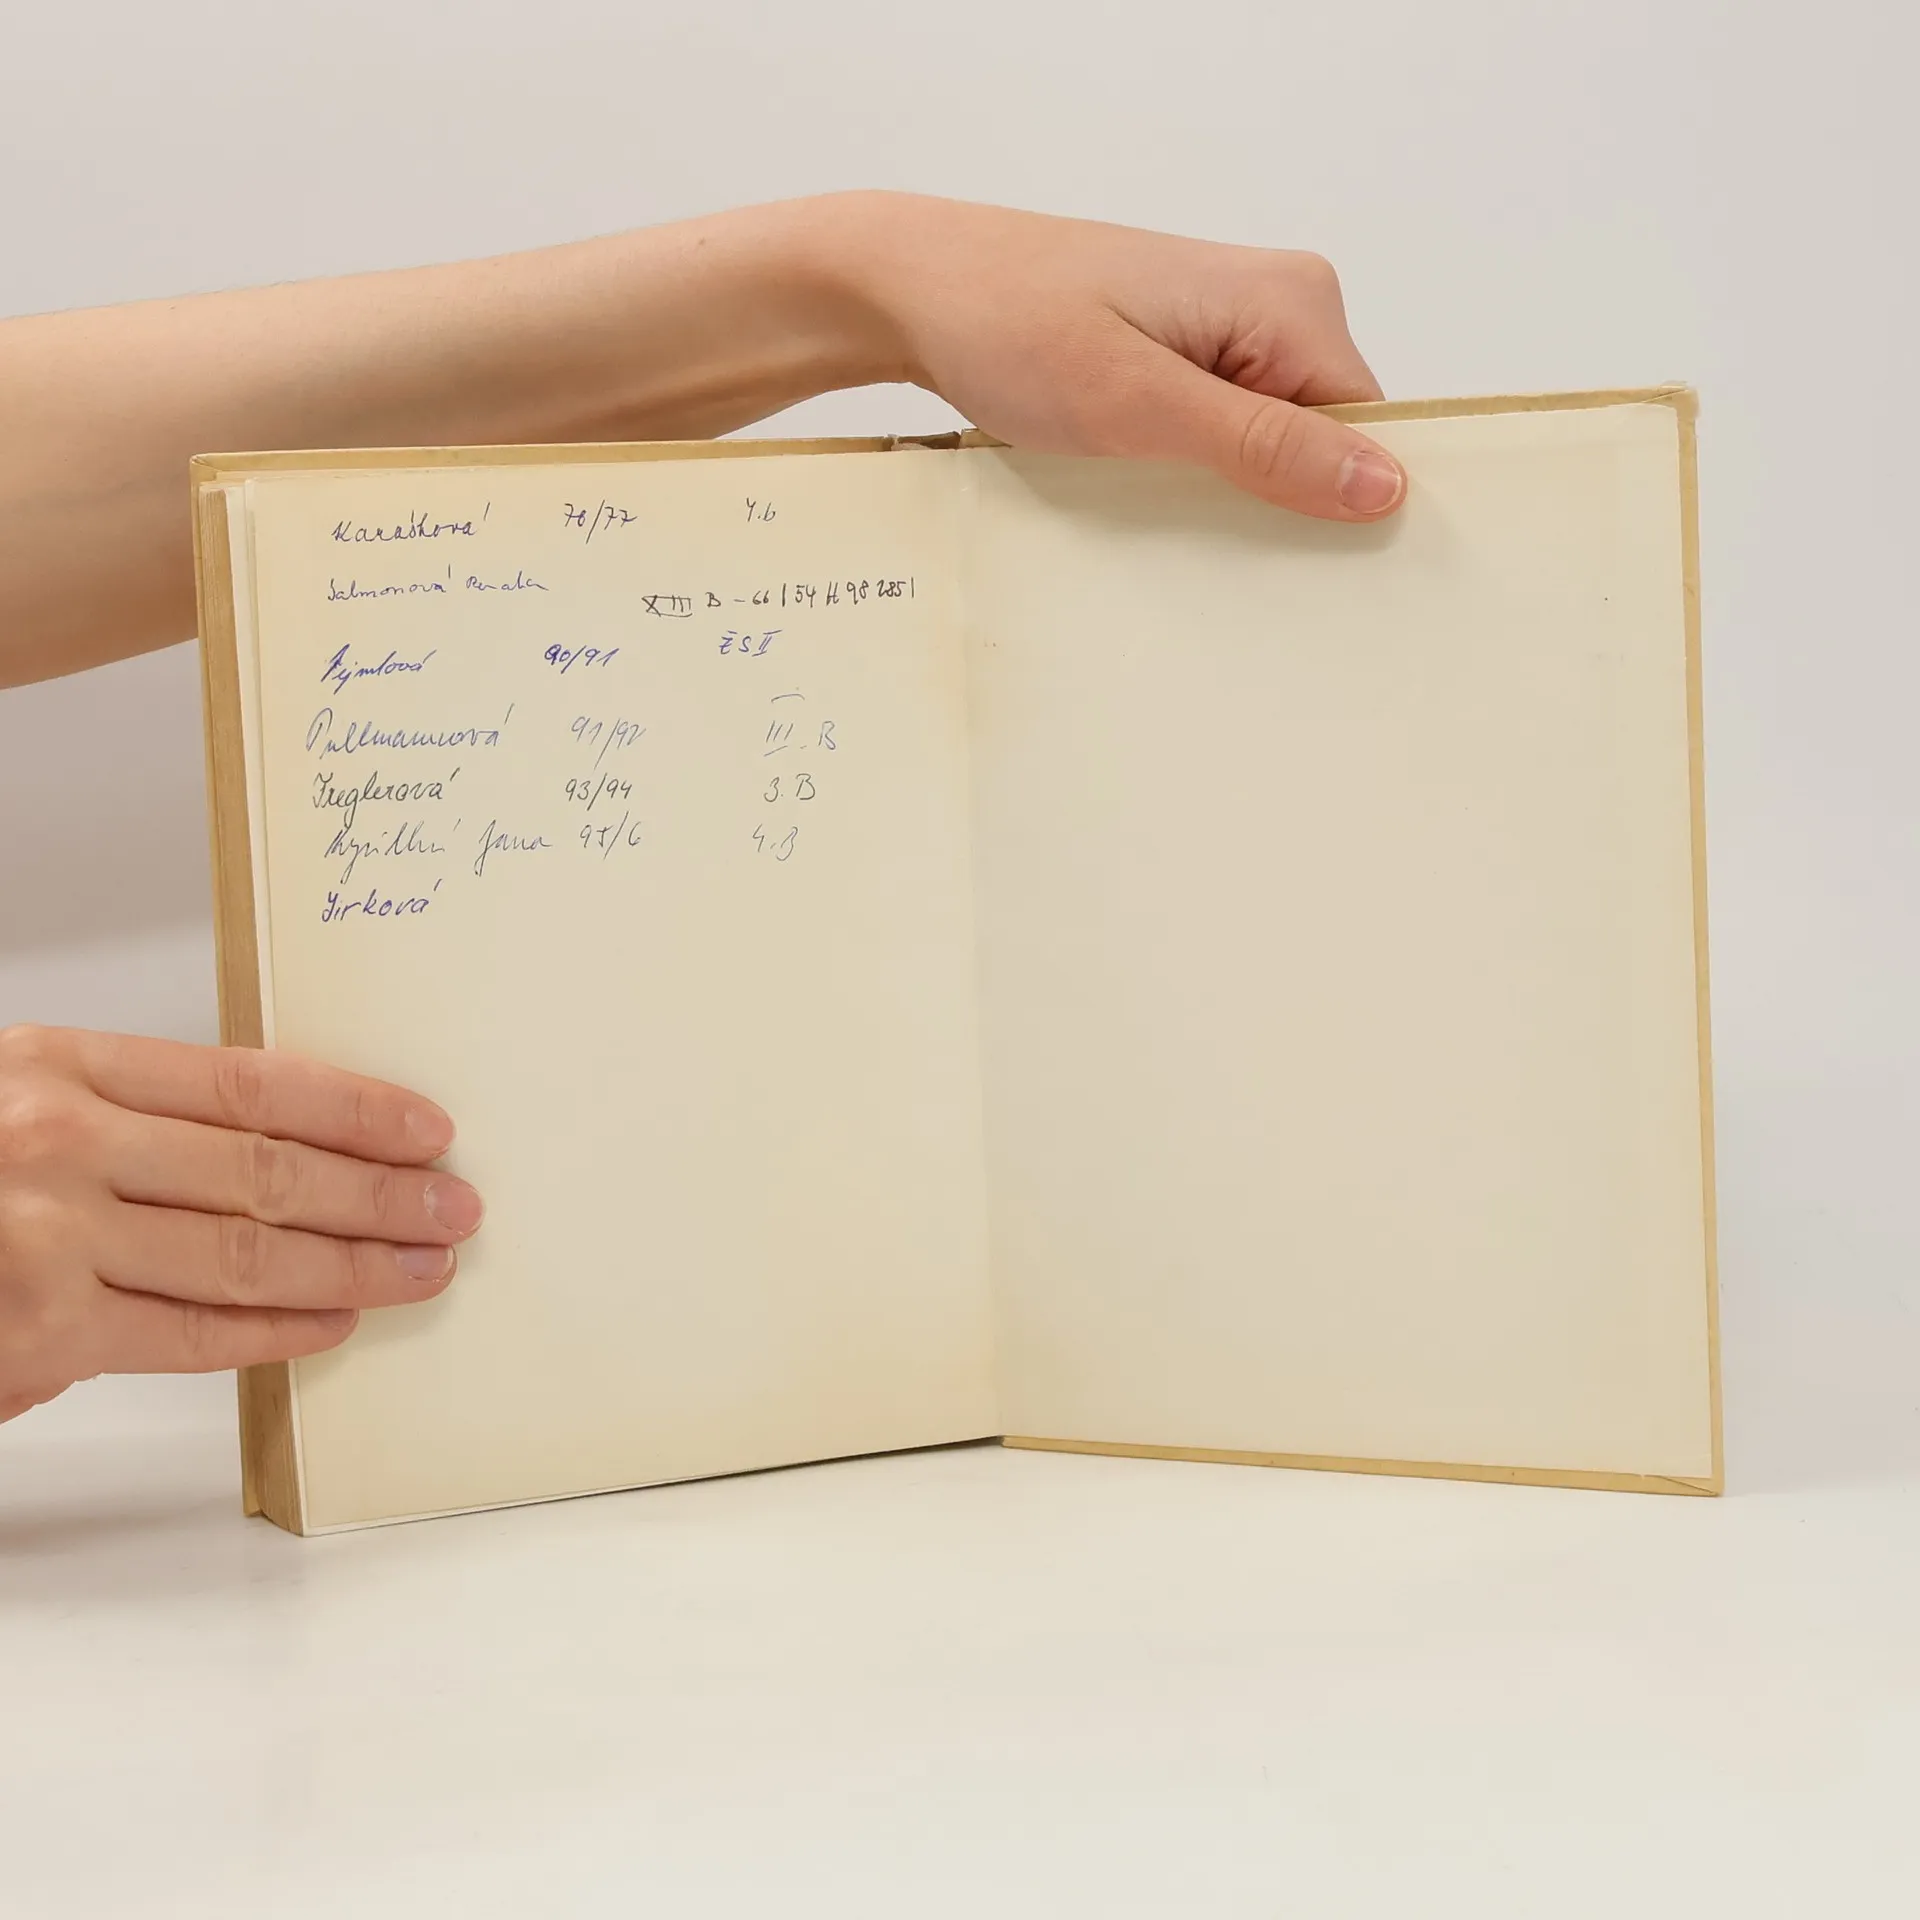 Karaśková 76/77 4.b
Šalmonová Renata
XIII B - 66 | 54 H 98 2851
Fejmlová 90/91 ZS II
Pullmannová 91/92 III. B
Treglerová 93/94 3. B
Jana 95/6 4.B
Jirková